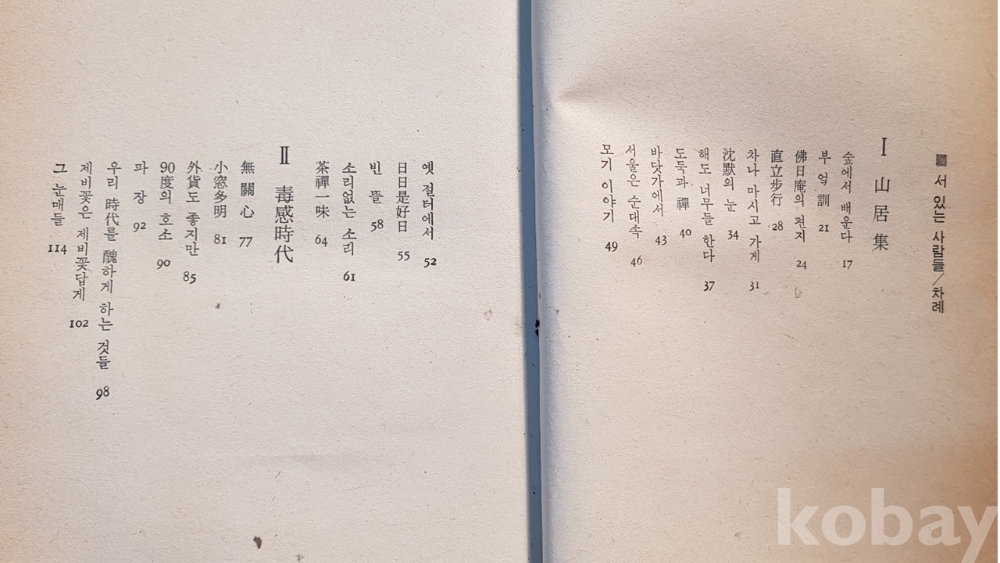 ■ 서 있는 사람들/차례
Ⅰ 山居集
숲에서 배운다 17
부엌訓 21
佛日庵의 편지 24
直立步行 28
차나 마시고 가게 31
沈默의 눈 34
해도 너무들 한다 37
도둑과 禪 40
바닷가에서 43
서울은 순대속 46
모기 이야기 49
옛 절터에서 52
日日是好日 55
빈 뜰 58
소리없는 소리 61
茶禪一味 64
Ⅱ 毒感時代
無關心 77
小窓多明 81
外貨도 좋지만 85
90度의 호소 90
파장 92
우리 時代를 醜하게 하는 것들 98
제비꽃은 제비꽃답게 102
그 눈매들 114
kobay